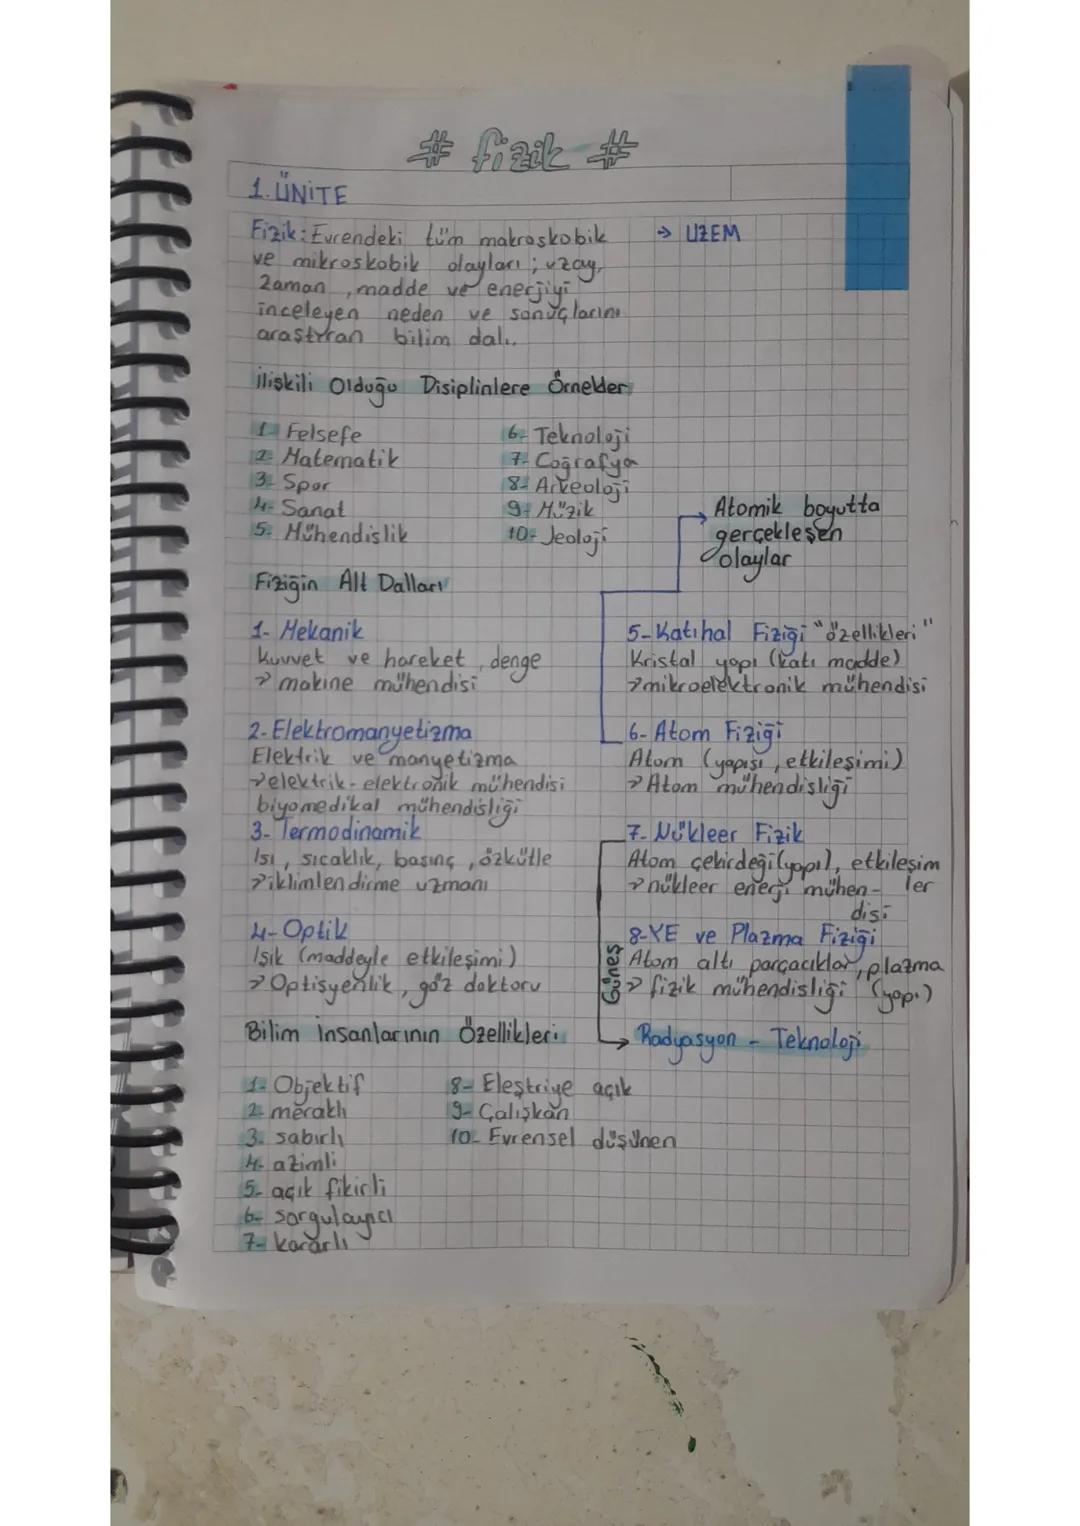 # fizik #
1. ÜNİTE
Fizik: Evrendeki tüm makroskobik → UZEM
ve mikroskobik olayları; uzay,
zaman, madde ve enerjiyi
inceleyen neden ve sonuçlarını
araştıran bilim dalı.
İlişkili Olduğu Disiplinlere Örnekler
1- Felsefe
2- Matematik
3- Spor
4- Sanat
5- Mühendislik
6- Teknoloji
7- Coğrafya
8- Arkeoloji
9- Müzik
10- Jeoloji
Atomik boyutta
gerçekleşen
olaylar
Fiziğin Alt Dalları
1- Mekanik
Kuvvet ve hareket, denge
→ makine mühendisi
2- Elektromanyetizma
Elektrik ve manyetizma
→ elektrik-elektronik mühendisi
biyomedikal mühendisliği
3- Termodinamik
Isı, sıcaklık, basınç, özkütle
→ iklimlendirme uzmanı
4- Optik
Işık (maddeyle etkileşimi)
→ Optisyenlik, göz doktoru
5- Katıhal Fiziği "özellikleri"
Kristal yapı (katı madde)
→ mikroelektronik mühendisi
6- Atom Fiziği
Atom (yapısı, etkileşimi)
→ Atom mühendisliği
7- Nükleer Fizik
Atom çekirdeği (yapı), etkileşim
→ nükleer enerji mühen- ler
disi
8- YE ve Plazma Fiziği
Atom altı parçacıklar, plazma
→ fizik mühendisliği (yapı)
Güneş
→ Radyasyon - Teknoloji
Bilim İnsanlarının Özellikleri
1- Objektif
2- meraklı
3- sabırlı
4- azimli
5- açık fikirli
6- sorgulayıcı
7- kararlı
8- Eleştriye açık
9- Çalışkan
10- Evrensel düşünen